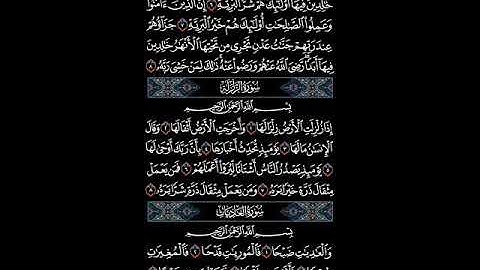 خَٰلِدِينَ فِيهَآ أُو۟لَٰٓئِكَ هُمْ شَرُّ ٱلْبَرِيَّةِ ٦ إِنَّ ٱلَّذِينَ ءَامَنُوا۟
وَعَمِلُوا۟ ٱلصَّٰلِحَٰتِ أُو۟لَٰٓئِكَ هُمْ خَيْرُ ٱلْبَرِيَّةِ ٧ جَزَآؤُهُمْ
عِندَ رَبِّهِمْ جَنَّٰتُ عَدْنٍ تَجْرِى مِن تَحْتِهَا ٱلْأَنْهَٰرُ خَٰلِدِينَ
فِيهَآ أَبَدًا رَّضِىَ ٱللَّهُ عَنْهُمْ وَرَضُوا۟ عَنْهُ ذَٰلِكَ لِمَنْ خَشِىَ رَبَّهُۥ ٨
سُورَةُ الزَّلْزَلَةِ
بِسْمِ ٱللَّهِ ٱلرَّحْمَٰنِ ٱلرَّحِيمِ
إِذَا زُلْزِلَتِ ٱلْأَرْضُ زِلْزَالَهَا ١ وَأَخْرَجَتِ ٱلْأَرْضُ أَثْقَالَهَا ٢ وَقَالَ
ٱلْإِنسَٰنُ مَا لَهَا ٣ يَوْمَئِذٍ تُحَدِّثُ أَخْبَارَهَا ٤ بِأَنَّ رَبَّكَ أَوْحَىٰ لَهَا
٥ يَوْمَئِذٍ يَصْدُرُ ٱلنَّاسُ أَشْتَاتًا لِّيُرَوْا۟ أَعْمَٰلَهُمْ ٦ فَمَن يَعْمَلْ
مِثْقَالَ ذَرَّةٍ خَيْرًا يَرَهُۥ ٧ وَمَن يَعْمَلْ مِثْقَالَ ذَرَّةٍ شَرًّا يَرَهُۥ ٨
سُورَةُ العَادِيَاتِ
بِسْمِ ٱللَّهِ ٱلرَّحْمَٰنِ ٱلرَّحِيمِ
وَٱلْعَٰدِيَٰتِ ضَبْحًا ١ فَٱلْمُورِيَٰتِ قَدْحًا ٢ فَٱلْمُغِيرَٰتِ